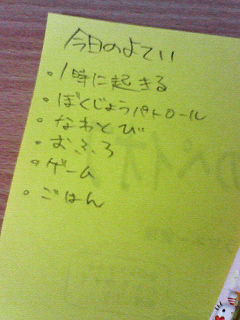 今日のよてい
・1時に起きる
・ぼくじょうパトロール
・なわとび
・おふろ
・ゲーム
・ごはん